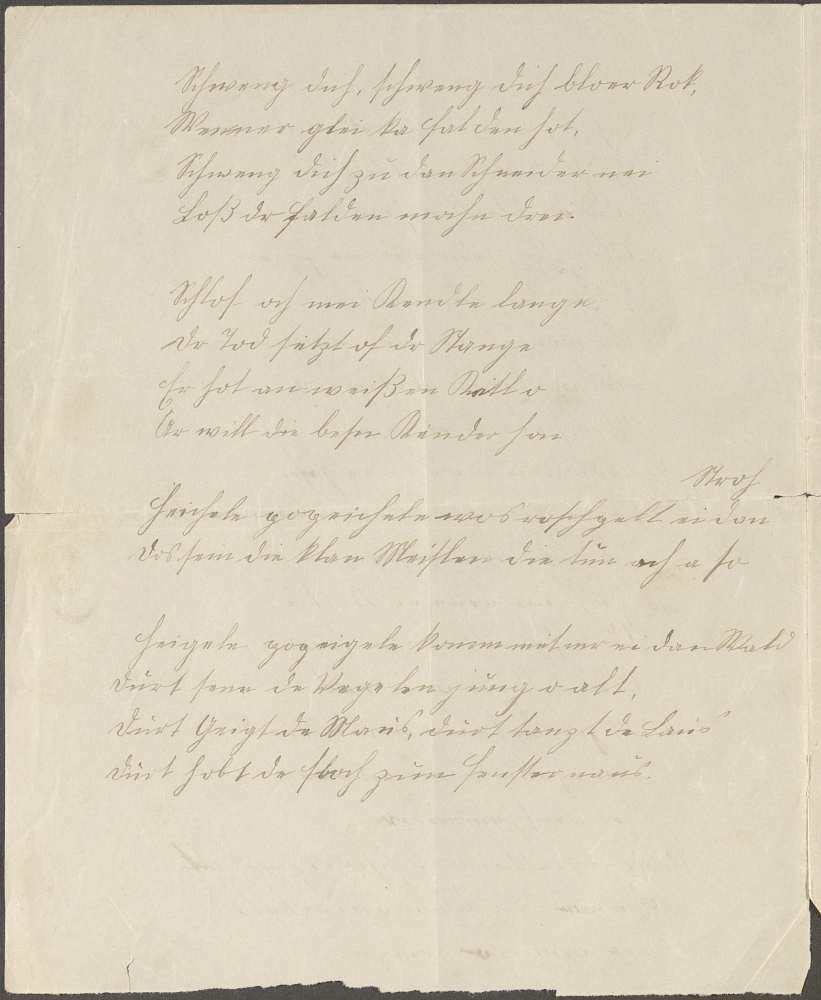 Schweng dich, schweng dich bloer Rok,
Wenner glei ka Falden hot,
Schweng dich zu dan Schneider nei
Loß dr Falden mochn drei.
Schlof och mei Kendle lange
Dr Tod setzt of dr Stange
Er hot an weißen Kittl o
Är will die besn Kinder hon
Stroh
Heichele popeichele wos roschpelt ei dan
Dos sein die klan Meislen die tun och a so
Heigele popeigele komm mit mr ei dan Wald
Durt senn de Vegelen jung o alt,
Durt Geigt de Maus, durt tanzt de Laus
Durt hobt de floch zum Fenster naus.